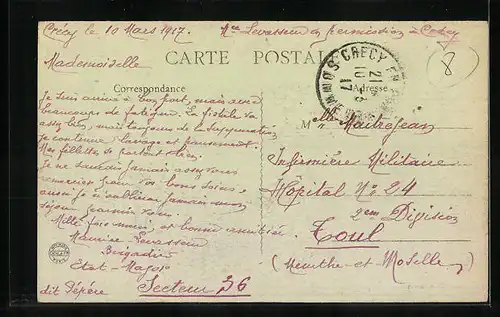 Crécy le 10 Mars 1917. Mce Levasseur en permission à Crécy
CARTE POSTALE
Mademoiselle
Correspondance
Adresse
CRECY EN
SOMME
21
10-3
17
8
Je suis arrivé à bon port, mais avec
beaucoup de fatigue. La fistule va
assez bien, mais toujours de la suppuration
je continue lavage et pansement.
Mes fillettes se portent bien.
Je ne saurai jamais assez vous
remercier pour vos bons soins,
aussi je n'oublierai jamais mon
séjour parmis vous.
Mille fois merci, et bonne amitiée
Maurice Levasseur
Brigadier
Etat-Major
dit Pépère Secteur 36
Melle Maitrejean
Infirmière Militaire
Hôpital No 24
2em Division
Toul
(Meurthe et Moselle)